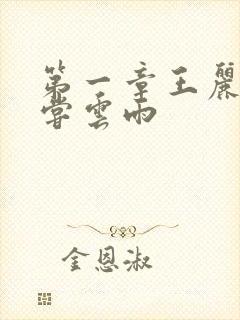 第一章王麗
嘗雲雨
金恩淑